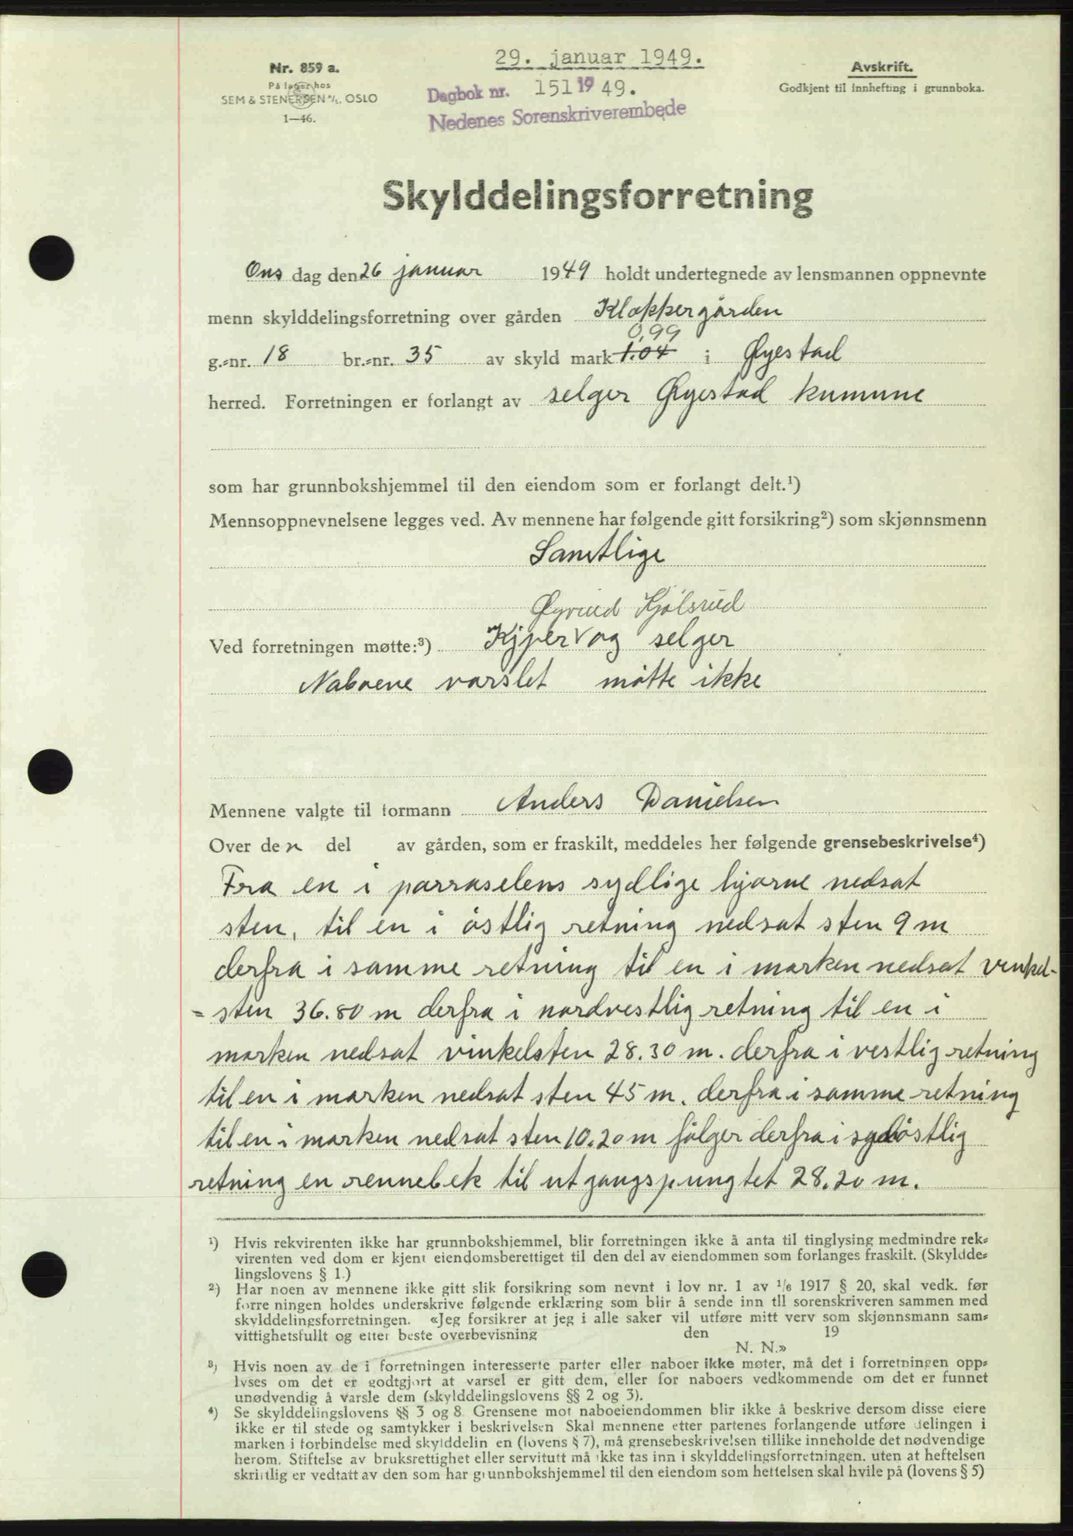 29. januar 1949.
Nr. 859 a.
På lager hos
SEM & STENERSEN A/S. OSLO
1—46.
Dagbok nr. 151 19 49.
Nedenes Sorenskriverembede
Avskrift.
Godkjent til innhefting i grunnboka.
Skylddelingsforretning
Ons dag den 26 januar 1949 holdt undertegnede av lensmannen oppnevnte
menn skylddelingsforretning over gården Kloppergården
0,99
g.-nr. 18 br.-nr. 35 av skyld mark 1.04 i Øyestad
herred. Forretningen er forlangt av selger Øyestad kumune
som har grunnbokshjemmel til den eiendom som er forlangt delt.¹)
Mennsoppnevnelsene legges ved. Av mennene har følgende gitt forsikring²) som skjønnsmenn
Samtlige
Øyvind Kjølsrud
Ved forretningen møtte:³) Kjøper og selger
Naboene varslet møtte ikke
Mennene valgte til formann Anders Danielsen
Over den del av gården, som er fraskilt, meddeles her følgende grensebeskrivelse⁴)
Fra en i parraselens sydlige hjørne nedsat
sten, til en i østlig retning nedsat sten 9 m
derfra i samme retning til en i marken nedsat vinkel-
= sten 36.80 m derfra i nordvestlig retning til en i
marken nedsat vinkelsten 28.30 m. derfra i vestlig retning
til en i marken nedsat sten 45 m. derfra i samme retning
til en i marken nedsat sten 10.20 m følger derfra i sydøstlig
retning en rennebek til utgangspungtet 28.20 m.
¹) Hvis rekvirenten ikke har grunnbokshjemmel, blir forretningen ikke å anta til tinglysing medmindre rek-
virenten ved dom er kjent eiendomsberettiget til den del av eiendommen som forlanges fraskilt. (Skyldde-
lingslovens § 1.)
²) Har noen av mennene ikke gitt slik forsikring som nevnt i lov nr. 1 av 1/6 1917 § 20, skal vedk. før
forretningen holdes underskrive følgende erklæring som blir å sende inn til sorenskriveren sammen med
skylddelingsforretningen. «Jeg forsikrer at jeg i alle saker vil utføre mitt verv som skjønnsmann sam-
vittighetsfullt og etter beste overbevisning den 19
N. N.»
³) Hvis noen av de i forretningen interesserte parter eller naboer ikke møter, må det i forretningen opp-
lyses om det er godtgjort at varsel er gitt dem, eller for naboers vedkommende om det er funnet
unødvendig å varsle dem (skylddelingslovens §§ 2 og 3).
⁴) Se skylddelingslovens §§ 3 og 8. Grensene mot naboeiendommen blir ikke å beskrive dersom disse eiere
ikke er til stede og samtykker i beskrivelsen Skal mennene etter partenes forlangende utføre delingen i
marken i forbindelse med skylddelin en (lovens § 7), må grensebeskrivelsen tillike inneholde det nødvendige
herom. Stiftelse av bruksrettighet eller servitutt må ikke tas inn i skylddelingsforretningen. uten at heftelsen
skriftlig er vedtatt av den som har grunnbokshjemmel til den eiendom som heftelsen skal hvile på (lovens § 5)